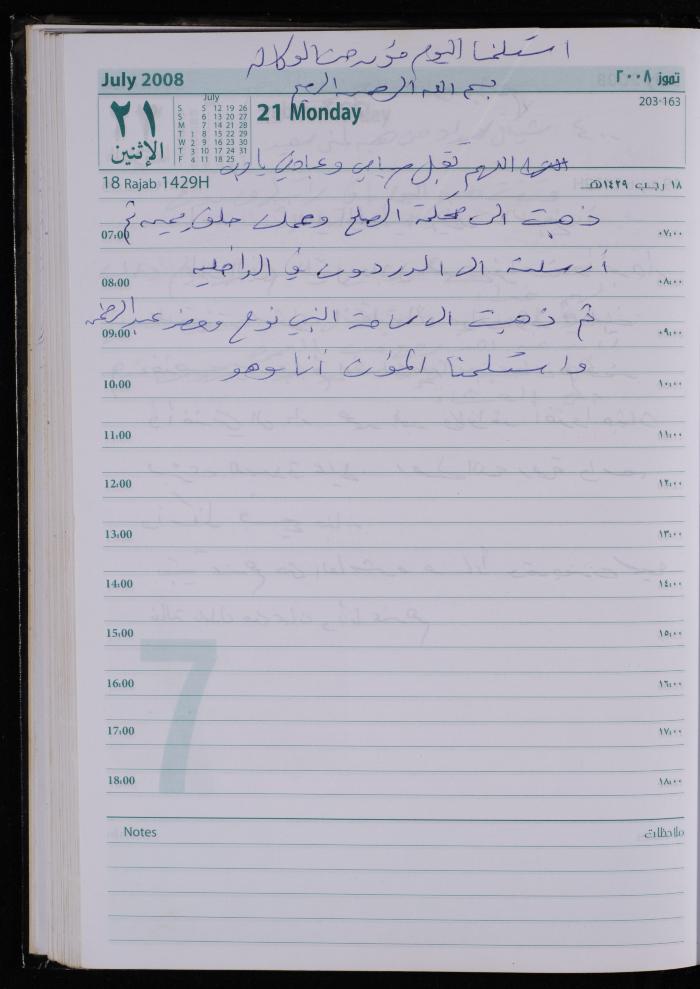 استلمنا اليوم مؤن من الوكالة
July 2008
تموز ٢٠٠٨
بسم الله الرحمن الرحيم
٢١
الإثنين
July
S 5 12 19 26
S 6 13 20 27
M 7 14 21 28
T 1 8 15 22 29
W 2 9 16 23 30
T 3 10 17 24 31
F 4 11 18 25
21 Monday
203-163
اللهم تقبل صيامي وعبادتي يا رب
18 Rajab 1429H
١٨ رجب ١٤٢٩هـ
ذهبت الى محكمة الصلح وعملت ثم
07:00 ٠٧:٠٠
أرسلته الى في الداخلية
08:00 ٠٨:٠٠
ثم ذهبت الى ساحة النبي
09:00 ٠٩:٠٠
واستلمنا المؤن أنا وهو
10:00 ١٠:٠٠
11:00 ١١:٠٠
12:00 ١٢:٠٠
13:00 ١٣:٠٠
14:00 ١٤:٠٠
15:00 ١٥:٠٠
7
16:00 ١٦:٠٠
17:00 ١٧:٠٠
18:00 ١٨:٠٠
Notes ملاحظات